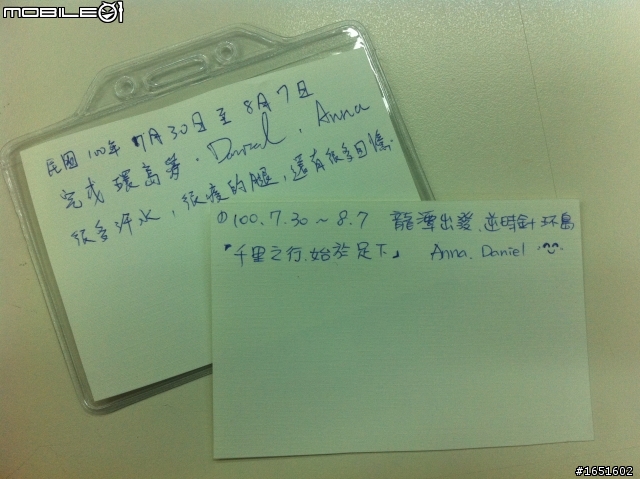 mobile01
民國100年 7月30日至8月7日
完成環島夢. Daniel, Anna
很多汗水, 很痠的腿, 還有很多回憶.
① 100.7.30~8.7 龍潭出發, 逆時針环島
「千里之行, 始於足下」 Anna. Daniel
#1651602